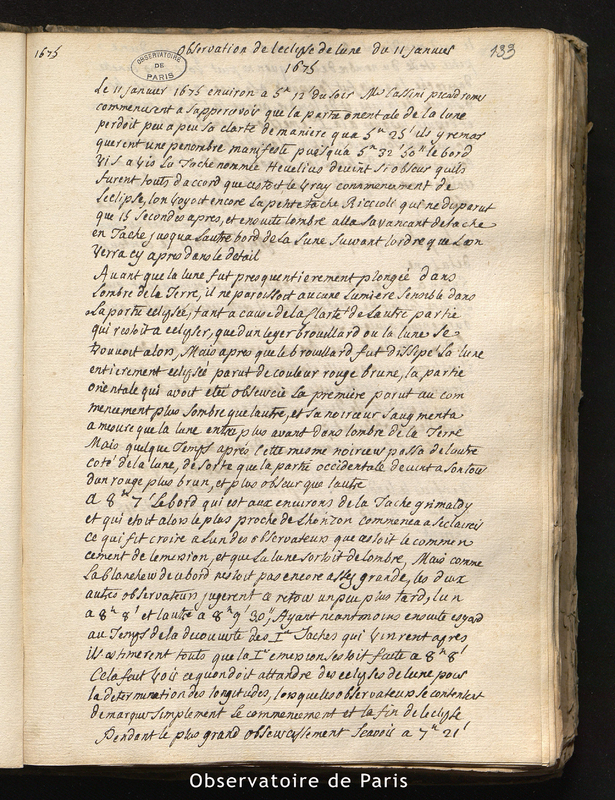 1675
Observation de leclypse de lune du 11 janvier
133
1675
OBSERVATOIRE
DE
PARIS
Le 11 janvier 1675 environ a 5h 12' du soir Mrs Cassini picard romer
commencerent a sappercevoir que la partie orientale de la lune
perdoit peu a peu sa clarté de maniere qua 5h 25' ils y remar
querent une penombre manifeste puisqua 5h 32' 50" le bord
vis a vis La Tache nommée Hevelius devint si obscur quils
furent touts daccord que cestoit le vray commencement de
Leclipse, lon voyoit encore La petite tache Riccioli qui ne disparut
que 15 secondes apres, et ensuite lombre alla savancant de tache
en Tache jusqua Lautre bord de la Lune suivant lordre que Lon
verra cy apres dans le detail
Avant que la lune fut presquentierement plongée dans
Lombre de la Terre, il ne paroissoit aucune Lumiere sensible dans
La partie eclypsée, tant a cause de la clarté de Lautre partie
qui restoit a eclypser, que dun leger brouillard ou la lune se
trouvoit alors, Mais apres que le brouillard fut dissipé La lune
entierement eclypsée parut de couleur rouge brune, la partie
orientale qui avoit eté obscurcie La premiere parut au com
mencement plus sombre que lautre, et sa noirceur saugmenta
a mesure que la lune entra plus avant dans lombre de la Terre
Mais quelque Temps apres Cette mesme noirceur passa de lautre
coté de la lune, de sorte que la partie occidentale devint a son tour
dun rouge plus brun, et plus obscur que lautre
A 8h 7' Le bord qui est aux environs de la Tache grimaldy
et qui etoit alors le plus proche de Lhorizon commenca a seclaircir
ce qui fit croire a Lun des observateurs que cestoit le commen
cement de lemersion, et que La lune sortoit de lombre, Mais comme
La blancheur de ce bord nestoit pas encore assés grande, les deux
autres observateurs jugerent ce retour un peu plus tard, Lun
a 8h 8' et lautre a 8h 9' 30", Ayant neantmoins ensuite esgard
au Temps de la decouverte des 1res Taches qui vinrent apres
ils estimerent touts que la 1re emersion sestoit faite a 8h 8'
Cela fait voir ce quon doit attandre des eclypses de lune pour
la determination des longitudes, lorsque les observateurs se contentent
de marquer simplement Le commencement et la fin de leclypse
Pendant le plus grand obscurcissement scavoir a 7h 21'
Observatoire de Paris